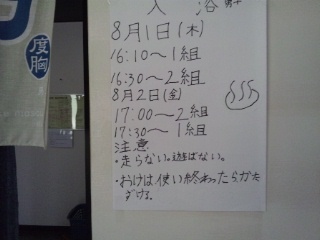 入浴 男子
8月1日(木)
16:10〜1組
16:30〜2組
8月2日(金)
17:00〜2組
17:30〜1組
注意
・走らない。遊ばない。
・おけは使い終わったらかた
ずける。
度胸